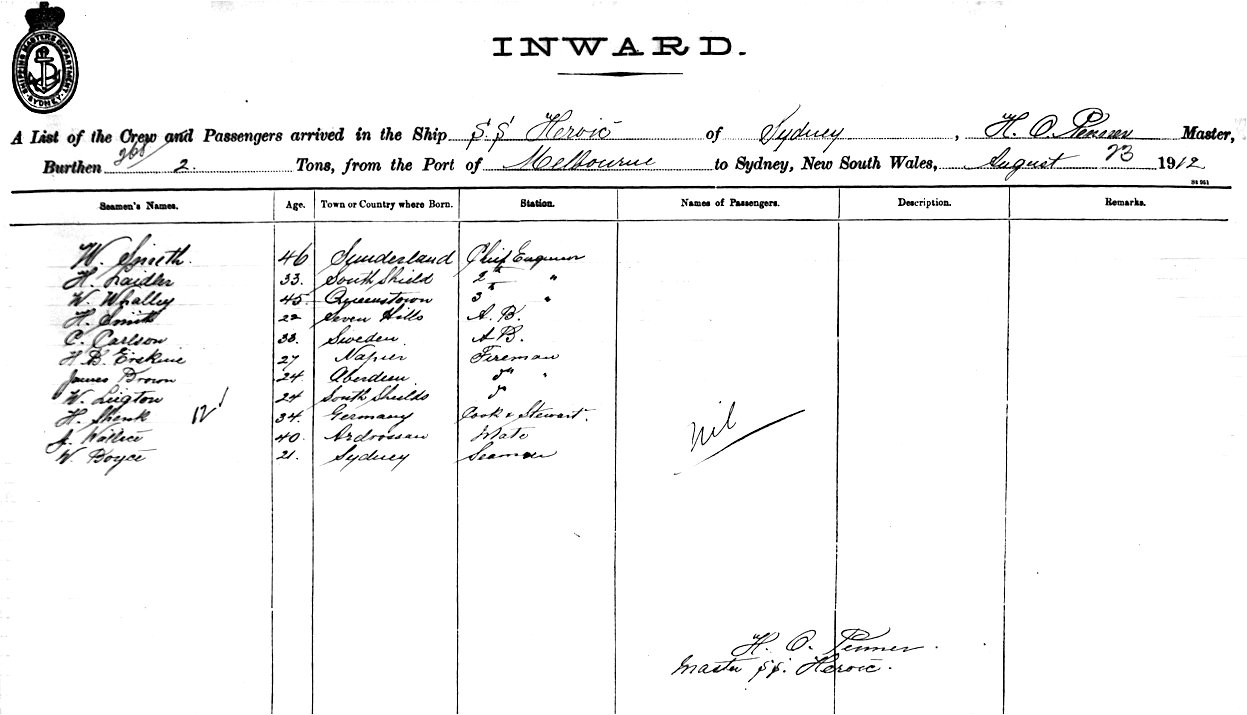 SHIPPING MASTERS DEPARTMENT SYDNEY
INWARD.
A List of the Crew and Passengers arrived in the Ship S.S Heroic of Sydney, H. O. Penner Master,
Burthen 268/2 Tons, from the Port of Melbourne to Sydney, New South Wales, August 23 1912
Seamen's Names. Age. Town or Country where Born. Station. Names of Passengers. Description. Remarks.
W. Smith. 46 Sunderland Chief Engineer
H. Laidler 33. South Shield 2nd "
W. Whalley 45. Queenstown 3rd "
H. Smith 22 Seven Hills A. B.
C. Carlson 33 Sweden. A B.
H. B. Erskine 27 Napier Fireman
James Brown 24 Aberdeen "
W. Lugton 24 South Shields "
H. Shenk 12 34. Germany Cook & Stewart
J. Wallice 40. Ardrossan Mate
W. Boyce 21. Sydney Seaman
Nil
H. O. Penner.
Master SS. Heroic.